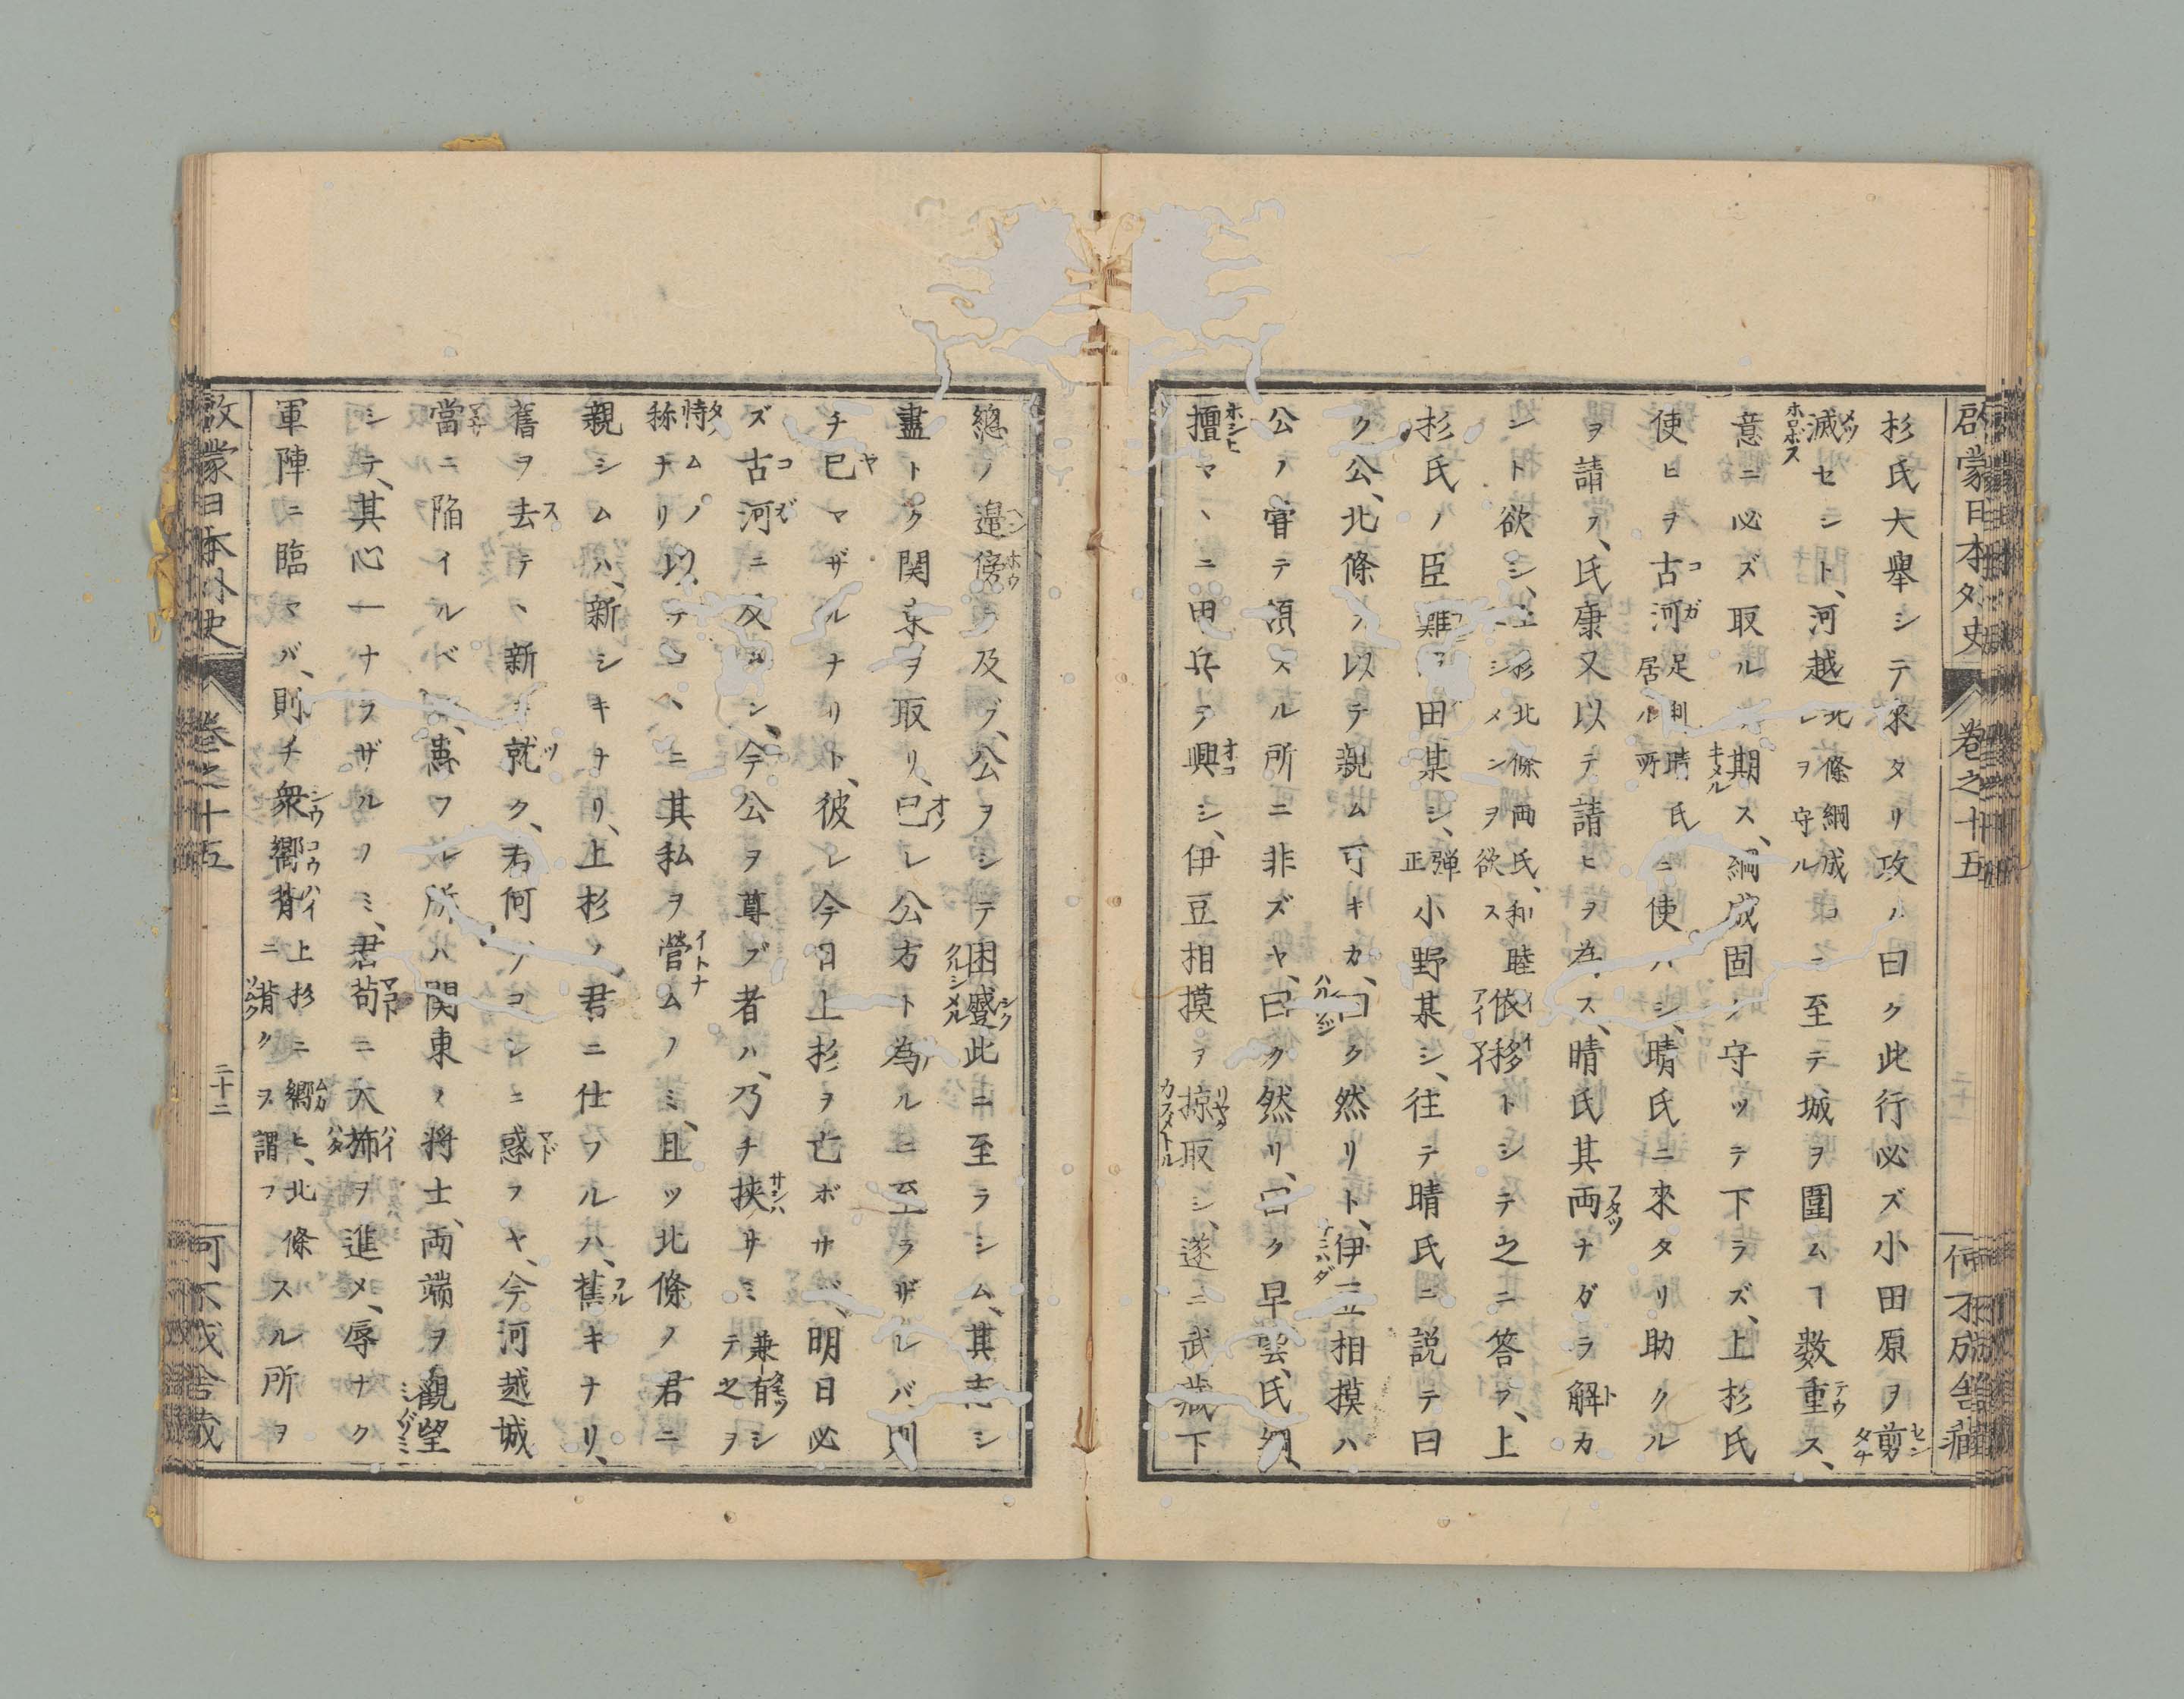 啓蒙日本外史 卷之十五 何不成舎藏
杉氏大舉シテ來タリ攻ム曰ク此行必ズ小田原ヲ剪
滅セシト、河越 北條綱成コレヲ守ル ニ至テ城ヲ圍ムヿ数重ス、
意ニ必ズ取ル 期ス、綱成固ク守ツテ下ラズ、上杉氏
使ヒヲ古河 足利晴氏居ル所 ニ使ハシ、晴氏ニ來タリ助クル
ヲ請フ、氏康又以テ請ヒヲ為ス、晴氏其両ナガラ解カ
シト欲シ、上杉北條両氏、和睦シメンヲ欲ス 依移トシテ之ニ答フ、上
杉氏ノ臣難 田某シ、弾正 小野某シ、往テ晴氏ニ説テ曰
ク公、北條ヲ以テ親ム可キカ、曰ク然リト、伊豆相摸ハ
公ノ甞テ須スル所ニ非ズヤ、曰ク然リ、曰ク早雲、氏綱、
擅マヽニ甲兵ヲ興シ、伊豆相摸ヲ掠取シ、遂ニ武藏下
總ノ邊傍ニ及ブ、公ヲシテ困蹙此ニ至ラシム、其志シ
盡トク関東ヲ取リ、巳レ公方ト為ルニ至ラザレバ則
チ已マザルナリト、彼レ今日上杉ヲ亡ボサバ、明日必
ズ古河ニ及 ン、今公ヲ尊ブ者ハ、乃チ挟サミ 兼有シテ之ヲ
恃ムノ称ナリ 以テコヽニ其私ヲ營ムノミ、且ツ北條ノ君ニ
親シムハ、新シキナリ、上杉ノ君ニ仕フルハ、舊キナリ、
舊ヲ去テ、新ニ就ク、君何ノコンニ惑フヤ、今河越城
當ニ陥イルベシ、憙フル所ハ関東ノ将士、両端ヲ觀望
シテ、其心一ナラザルノミ、君茍ニ大旆ヲ進メ、辱ナク
軍陣ニ臨マバ、則チ衆嚮背 上杉ニ嚮ヒ、北條ニ背クヲ謂フ スル所ヲ
啓蒙日本外史 卷之十五 二十二 何不成舎藏